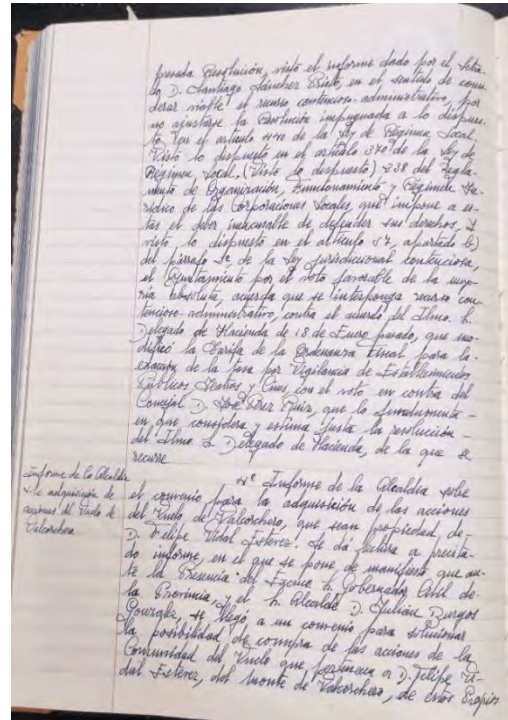 presada Resolución, visto el informe dado por el Letra-
do D. Santiago Sánchez Prieto, en el sentido de consi-
derar viable el recurso contencioso-administrativo, por
no ajustarse la Resolución impugnada a lo dispues-
to con el artículo 440 de la Ley de Régimen Local.
Visto lo dispuesto en el artículo 370 de la Ley de
Régimen Local, (Visto lo dispuesto) 338 del Regla-
mento de Organización, Funcionamiento y Régimen Ju-
rídico de las Corporaciones Locales, que impone a es-
tas el deber inexcusable de defender sus derechos, y
visto lo dispuesto en el artículo 57, apartado b)
del párrafo 2º de la Ley jurisdiccional contenciosa,
el Ayuntamiento por el voto favorable de la mayo-
ría absoluta, acuerda que se interponga recurso con-
tencioso-administrativo, contra el acuerdo del Ilmo. Sr.
Delegado de Hacienda de 18 de Enero pasado, que mo-
dificó la Tarifa de la Ordenanza fiscal para la
exacción de la tasa por Vigilancia de Establecimientos
Públicos, Teatros y Cines, con el voto en contra del
Concejal D. José Díez Ruiz, que lo fundamenta -
en que considera y estima justa la resolución -
del Ilmo. Sr. Delegado de Hacienda, de la que se
recurre
Informe de la Alcaldía
s/ adquisición de
acciones del Vuelo de
Valcorchero
4º Informe de la Alcaldía sobre
el convenio para la adquisición de las acciones
del Vuelo de Valcorchero, que sean propiedad de
D. Felipe Vidal Estevez. Se dá lectura a precita-
do informe, en el que se pone de manifiesto que an-
te la Presencia del Excmo. Sr. Gobernador Civil de
la Provincia, y el Sr. Alcalde D. Julián Burgos
González, se llegó a un convenio para
la posibilidad de compra de las acciones de la
Comunidad del Vuelo que pertenecen a D. Felipe Vi-
dal Estevez, del monte de Valcorchero, de estos Propios